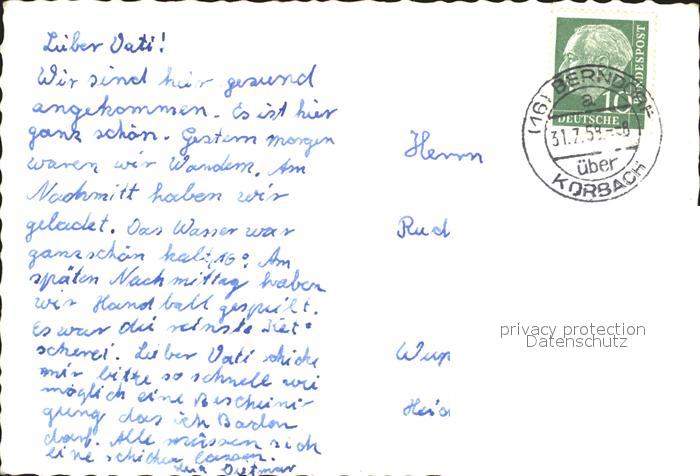 Lieber Vati!
Wir sind hier gesund
angekommen. Es ist hier
ganz schön. Gestern morgen
waren wir Wandern. Am
Nachmitt haben wir
gebadet. Das Wasser war
ganz schön kalt, 16°. Am
späten Nachmittag haben
wir Handball gespielt.
Es war die reinste Ket-
scherei. Lieber Vati schicke
mir bitte so schnell wie
möglich eine Bescheini-
gung das ich Baden
darf. Alle müssen sich
eine schicken lassen.
dein Dietmar
Herrn
Rud
Wup
DEUTSCHE BUNDESPOST
10
(16) BERNDORF
a
31.7.58.-8
über
KORBACH
privacy protection
Datenschutz